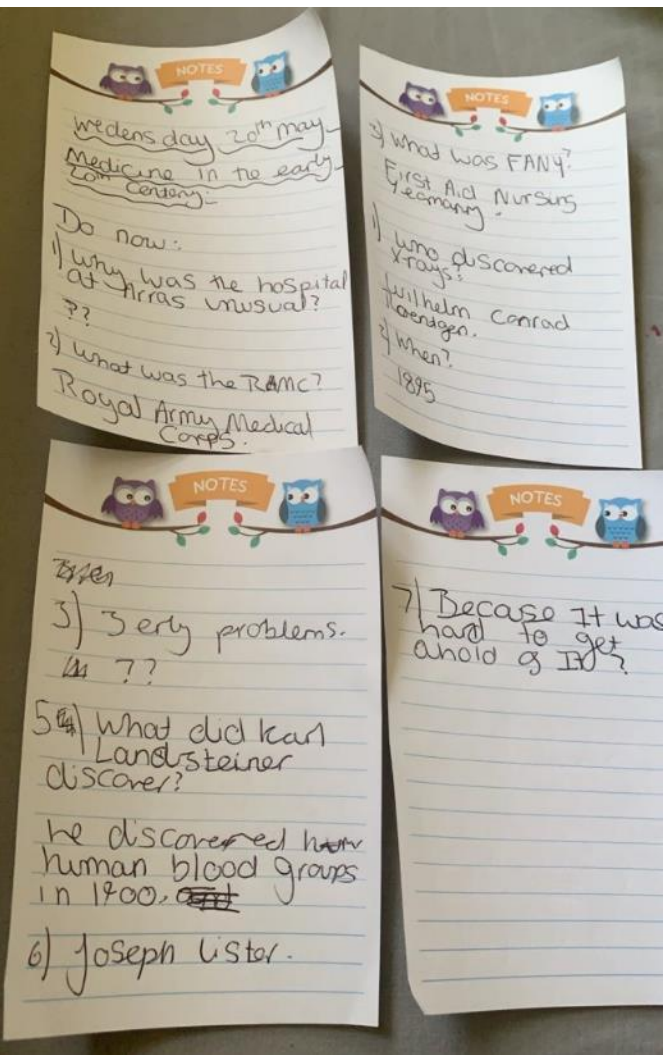 NOTES
wedensday 20th may
Medicine in the early
20th Centeny:
Do now:
1) Why was the hospital
at Arras unusual?
??
2) What was the RAMC?
Royal Army Medical
Corps.
NOTES
3) What was FANY?
First Aid Nursing
Yeomanry.
1) who discovered
x-rays?
Wilhelm Conrad
Roentgen.
2) When?
1895
NOTES
3) 3 erly problems.
??
5) What did Karl
Landsteiner
discover?
he discovered
human blood groups
in 1900.
6) Joseph Lister.
NOTES
7) Becase It was
hard to get
ahold of It?